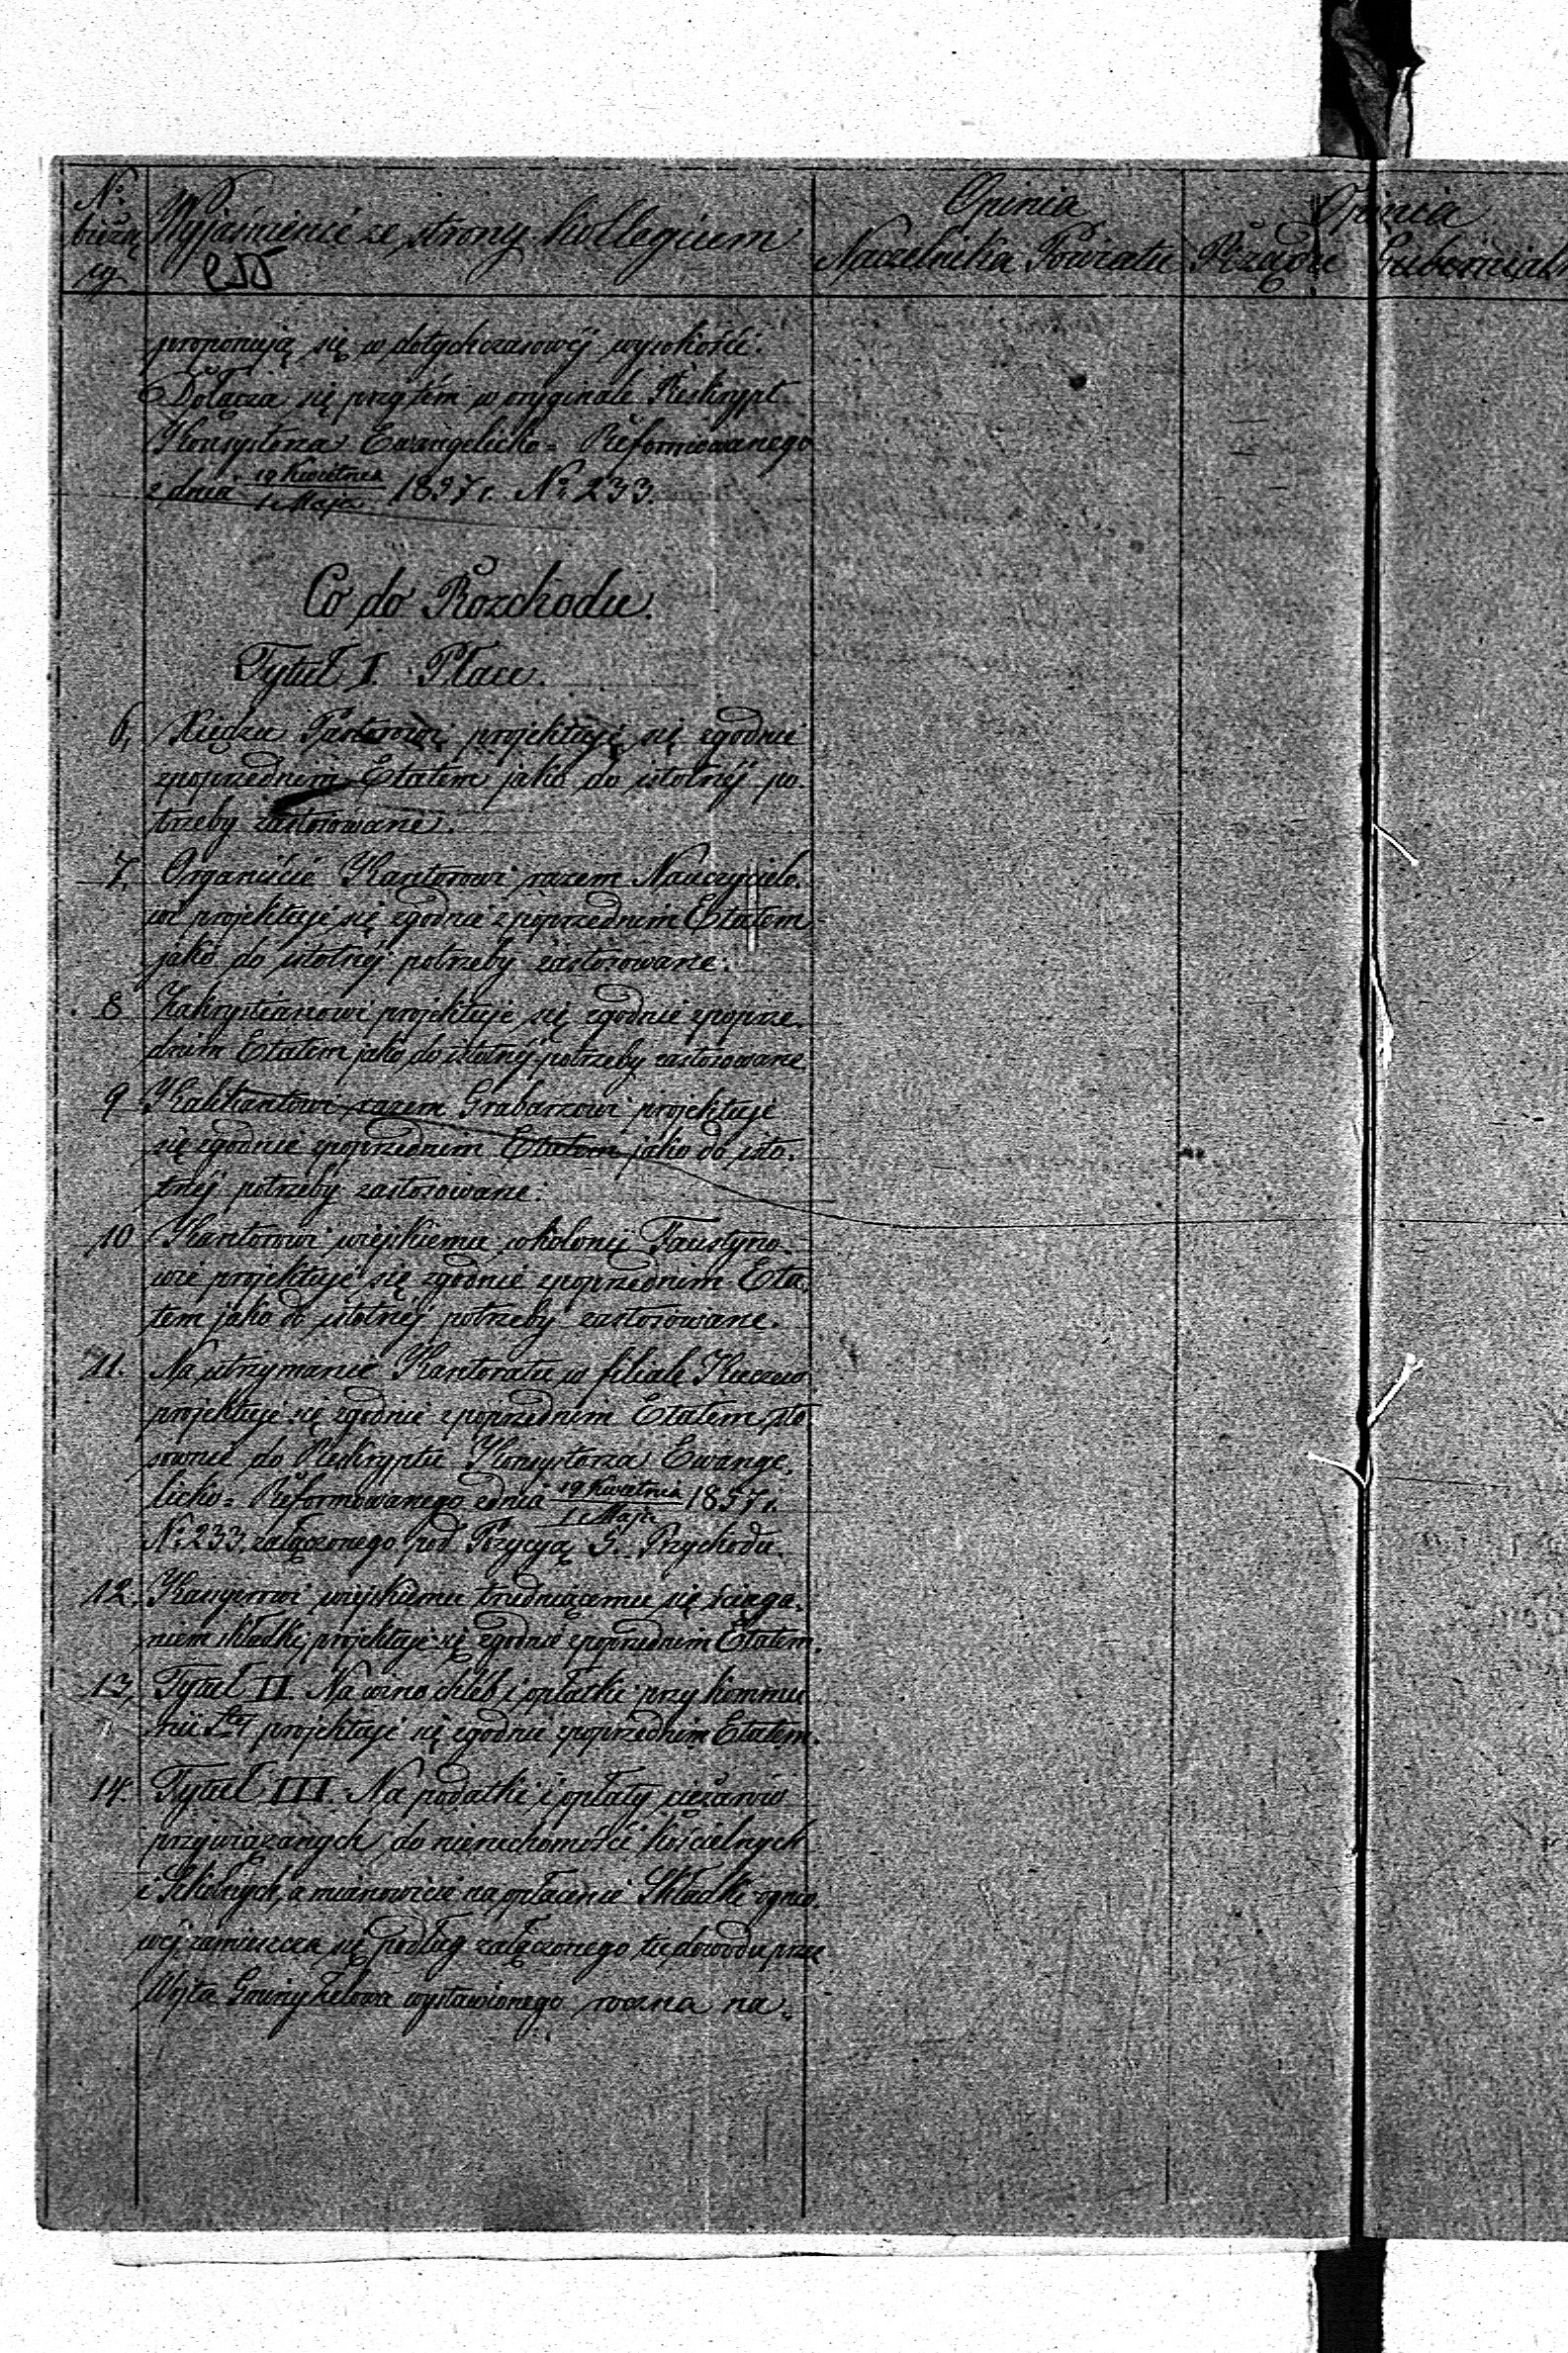 No bieżą cy
Wyjaśnienie ze strony kollegium
Opinia
Naczelnika Powiatu
Opinia
Rządu Gubernial
proponują się w dotychczasowéj wysokości.
Dołącza się przytém w oryginale Reskrypt
Konsystorza Ewangelicko=Reformowanego
z dnia 19 Kwietnia / 1 Maja 1857 r. No 233.
Co do Rozchodu.
Tytuł I. Płace.
6, Xiędzu Pastorowi projektuje się zgodnie
zpoprzednim Etatem jako do istotnéj po-
trzeby zastosowane.
7, Organiście Kantorowi razem Nauczycielo-
wi projektuje się zgodnie z poprzednim Etatem
jako do istotnéj potrzeby zastosowane.
8 Zakrystianowi projektuje się zgodnie zpoprze-
dnim Etatem jako do istotnéj potrzeby zastosowane
9 Kalikantowi razem Grabarzowi projektuje
się zgodnie zpoprzednim Etatem jako do isto-
tnéj potrzeby zastosowane.
10 Kantorowi wiejskiemu wkolonii Faustyno-
wie projektuje się zgodnie zpoprzednim Eta-
tem jako do istotnéj potrzeby zastosowane.
11. Na utrzymanie Kantoratu w filiale Kuczow
projektuje się zgodnie z poprzednim Etatem sto
sownie do Reskryptu Konsystorza Ewange-
licko=Reformowanego zdnia 19 Kwietnia / 1 Maja 1857 r.
No 233. załączonego pod Pozycyą 5. Przychodu.
12. Kassyerowi wiejskiemu trudniącemu się ściąga-
niem składki, projektuje się zgodnie zpoprzednim Etatem.
13, Tytuł II. Na wino chléb i opłatki przy kommu
nii Stéj projektuje się zgodnie zpoprzednim Etatem.
14. Tytuł III. Na podatki i opłaty ciężarów
przywiązanych do nieruchomości kościelnych
i Szkolnych, a mianowicie na opłacenie Składki ognio-
wéj zamieszcza się podług załączonego tu dowodu przez
Wójta Gminy Zelowa wystawionego roczna na-